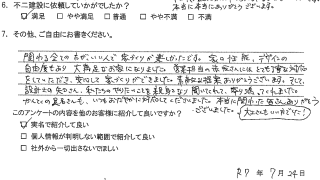 本当にありがとうございます。
6. 不二建設に依頼していかがでしたか？
☑満足 □やや満足 □普通 □やや不満 □不満
7. その他、ご自由にお書きください。
関わる全ての方がいい人で家づくりが楽しかったです。家の性能、デザインの
自由度もあり大満足なお家になりました。営業担当の
していただき、安心して家づくりができました。素敵な提案ありがとうございます。そして、
設計士の 、私たちのやりたいことを親身になり聞いてくれて、寄り添ってくれました。
かんとくの さんも、いつもおだやかに対応してくださいました。本当に関わった皆さんありがとう
ございました。大工さんもいい方でした！
このアンケートの内容を他のお客様に紹介して良いですか？
☑実名で紹介して良い
□個人情報が判明しない範囲で紹介して良い
□社外から一切出さないでほしい
R7年7月24日